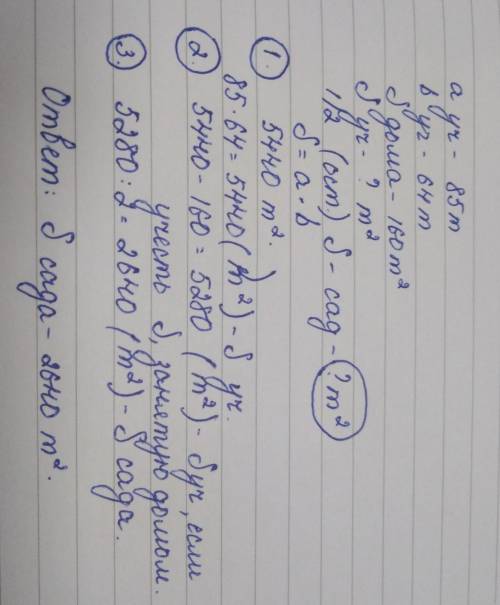 a уч - 85m
b уч - 64m
S дома - 160m²
S уч - ? m²
1/2 (ост) S - сад - ? m²
S = a · b
1. 5440 m².
85 · 64 = 5440 (m²) - S уч.
2. 5440 - 160 = 5280 (m²) - S уч, если
учесть S, занятую домом.
3. 5280 : 2 = 2640 (m²) - S сада.
Ответ: S сада - 2640 m².